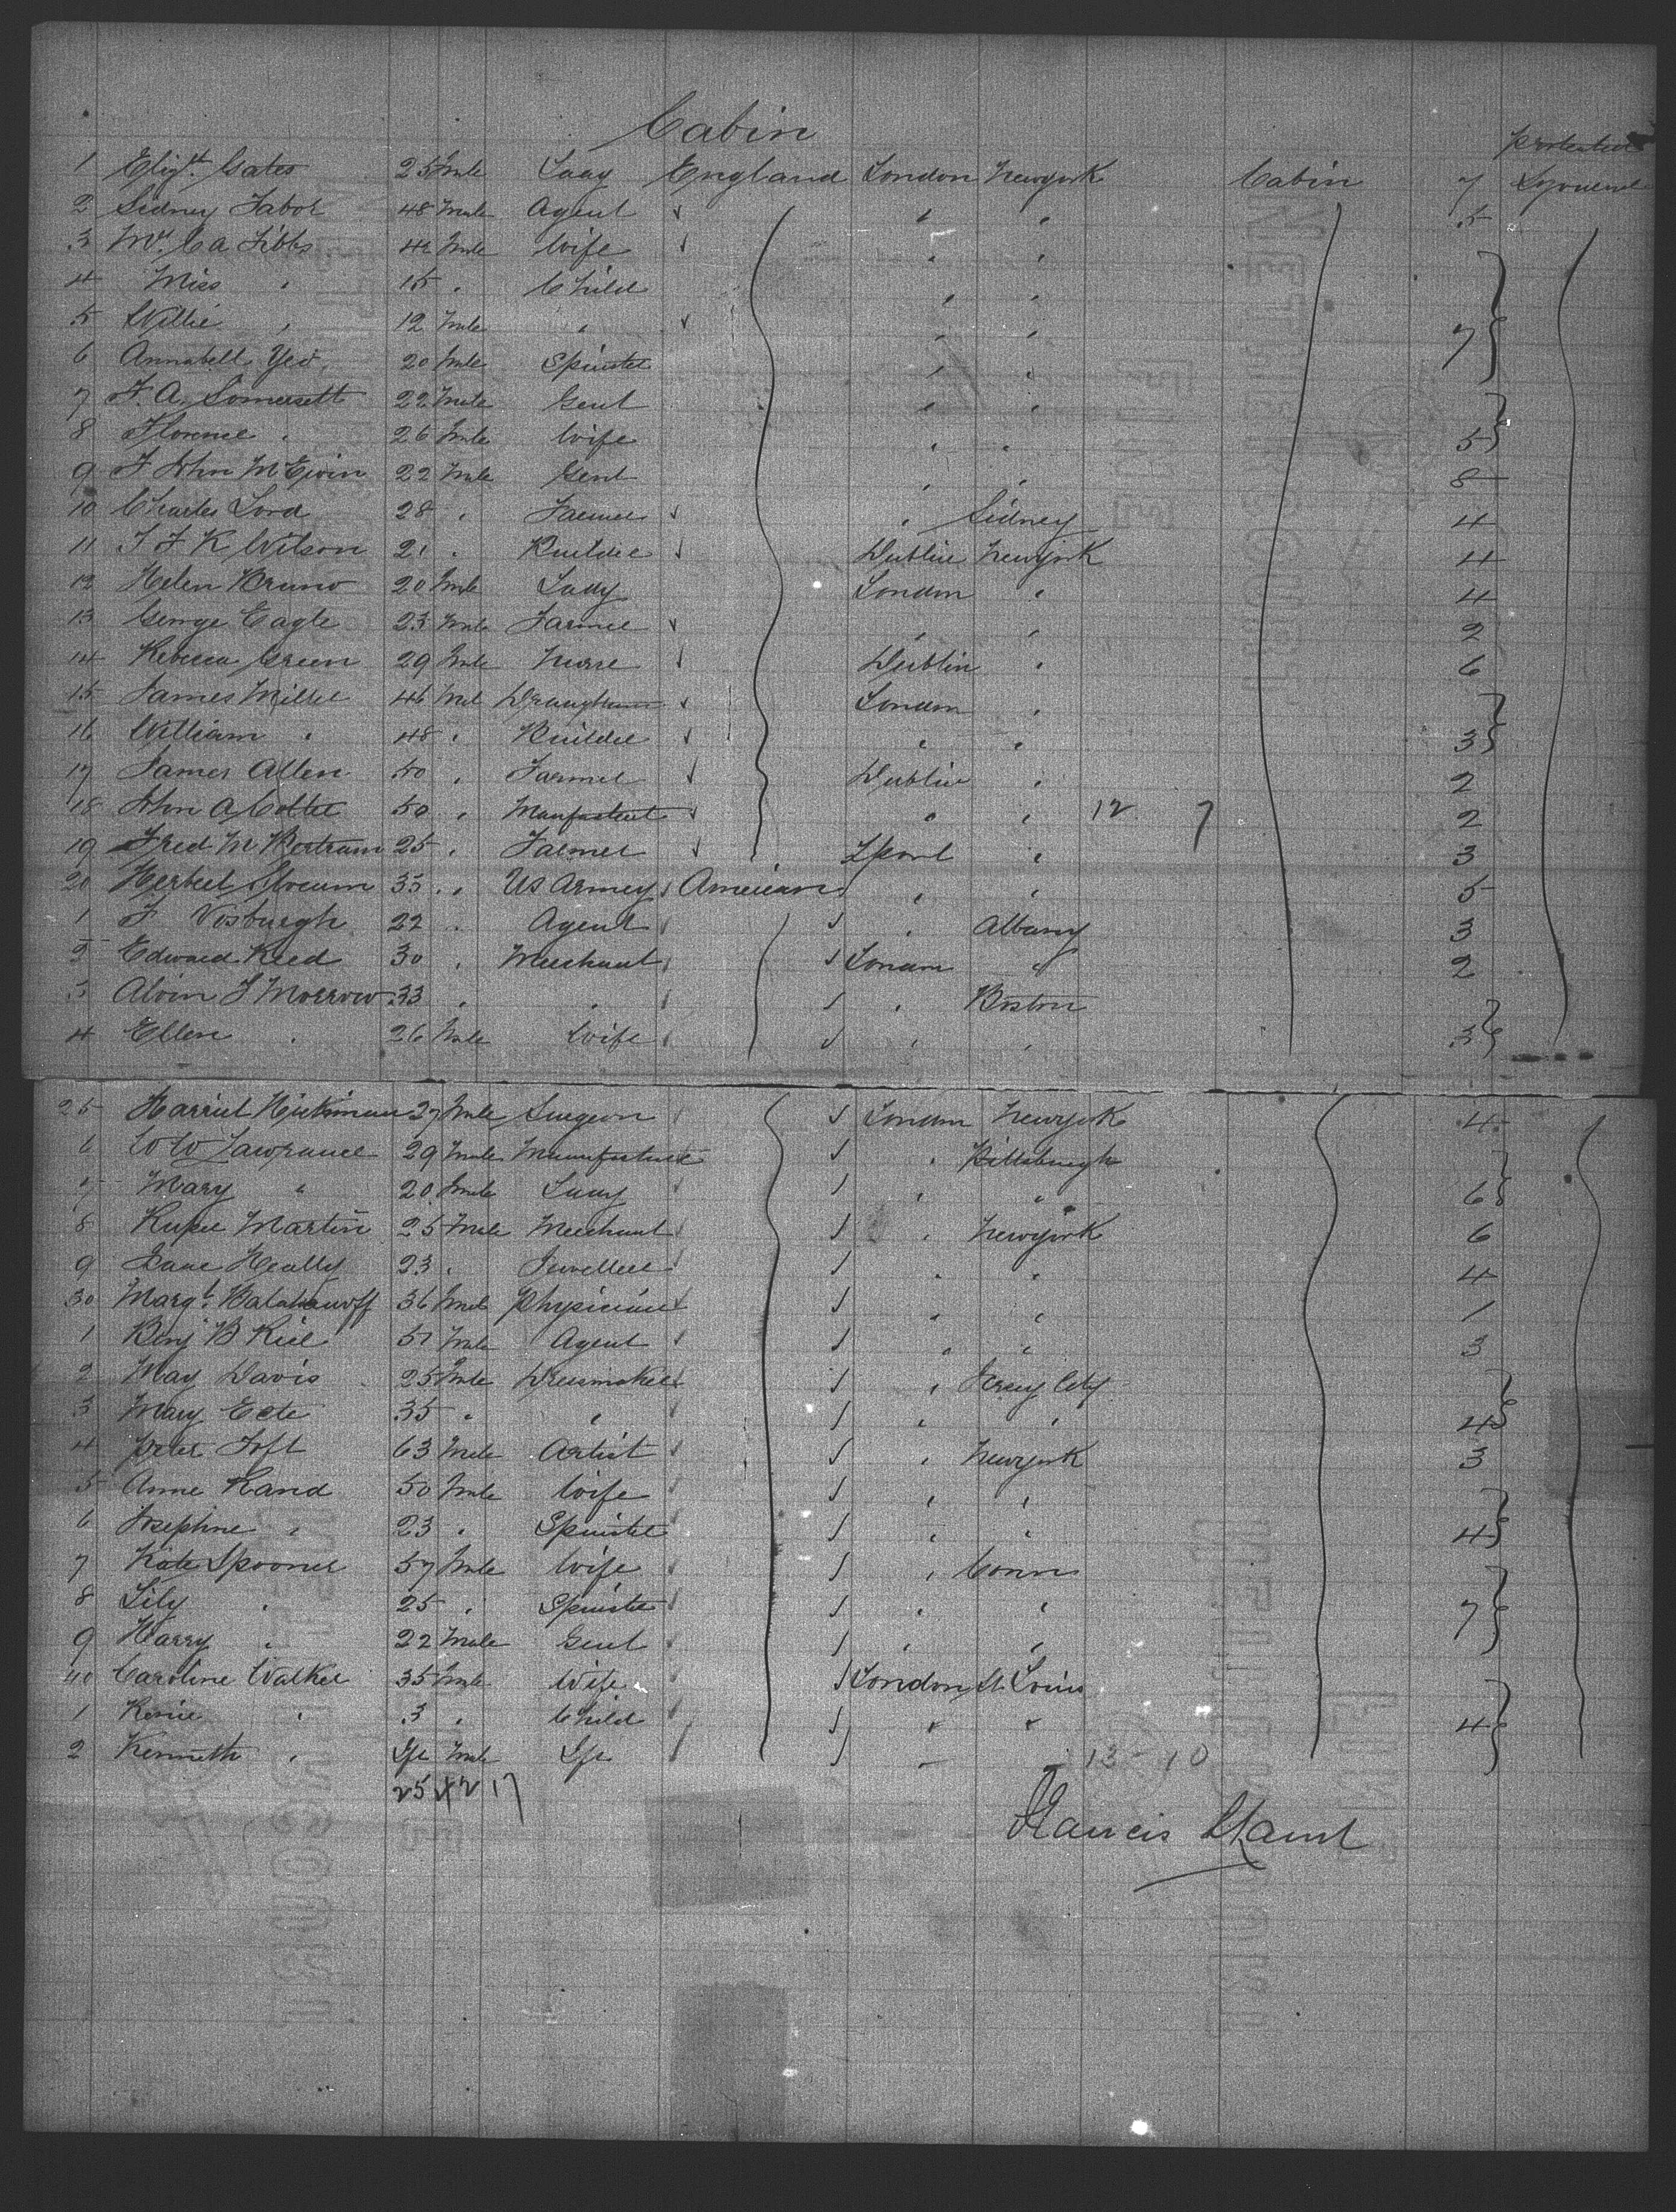 Cabin
protracted
1 Elizt. Gates 25 Lady England London Newyork Cabin 7 Sojourn
2 Sidney Tabor 48 Male Agent ✓ " " 5
3 Mrs. C A Tibbs 42 Wife ✓ " "
4 Miss " 15 " Child " "
5 Willie " 12 Male " ✓ " " 7
6 Annabell Yeo 20 Spinster " "
7 F. A. Somersett 22 Male Gent " "
8 Florence " 26 Wife " " 5
9 F John McEwin 22 Male Gent " " 8
10 Charles Lord 28 " Farmer ✓ " Sidney 4
11 J F K Wilson 21 " Builder ✓ Dublin Newyork 4
12 Helen Bruno 20 Lady London " 4
13 George Eagle 23 Male Farmer ✓ " " 2
14 Rebecca Green 29 Nurse ✓ Dublin " 6
15 James Miller 46 Male ✓ London "
16 William " 48 " Builder ✓ " " 3
17 James Allen 50 " Farmer ✓ Dublin " 2
18 John A Cotter 50 " ✓ " " 12 7 2
19 Fred M Bertram 25 " Farmer ✓ Lpool " 3
20 Herbert Slocum 35 " US Army American " " 5
1 F Vosburgh 22 " Agent " Albany 3
2 Edward Reed 30 " Merchant London " 2
3 Alvin F Morrow 33 " " " Boston
4 Ellen " 26 Wife " " 3
25 Harriet Hickman 27 Surgeon London Newyork 4
6 W W Lawrance 29 Male Manufacturer " Pittsburgh
7 Mary " 20 Lady " " 6
8 Martin 25 Male Merchant " Newyork 6
9 Heally 23 " Jeweller " " 4
30 Margt. 36 Physician " " 1
1 Benj B Rice 51 Male Agent " " 3
2 May Davis 25 Dressmaker " Jersey City
3 Mary 35 " " " " 4
4 Peter Toft 63 Male Artist " Newyork 3
5 Anne Rand 50 Wife " "
6 Josephine " 23 " Spinster " " 4
7 Kate Spooner 57 Wife " Conn
8 Lily " 25 " Spinster " "  7
9 Harry " 22 Male Gent " "
40 Caroline Walker 35 Wife London St Louis
1 " 3 " Child " " 4
2 Kenneth " Male
13 10
25 42 17
Francis